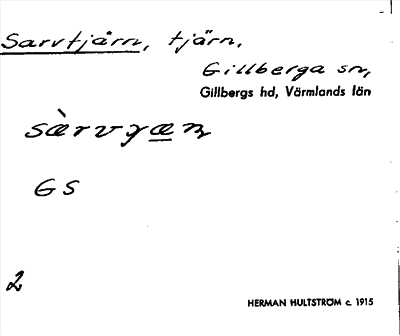 Sarvtjärn, tjärn.
Gillberga sn,
Gillbergs hd, Värmlands län
GS
2
HERMAN HULTSTRÖM c. 1915